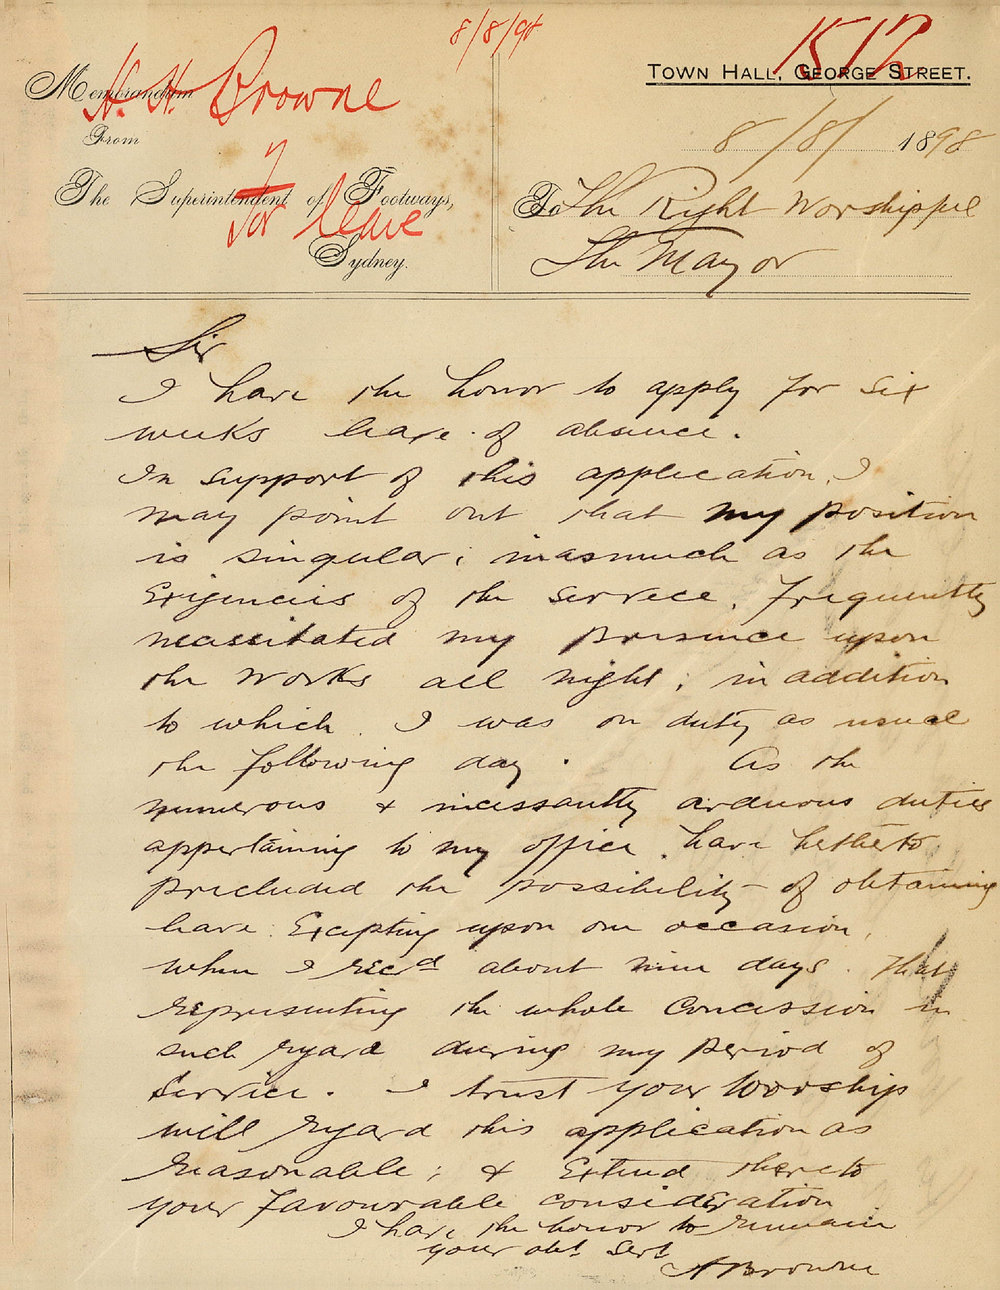 8/8/98
1512
H. H. Browne
for leave
Memorandum
From
The Superintendent of Footways,
Sydney.
TOWN HALL, GEORGE STREET.
8/8/ 1898
To The Right Worshippel
The Mayor
Sir
I have the honor to apply for six
weeks leave of absence.
In support of this application, I
may point out that my position
is singular; inasmuch as the
Exigencies of the service, frequently
necessitated my presence upon
the works all night; in addition
to which I was on duty as usual
the following day. As the
numerous & incessantly arduous duties
appertaining to my office, have hetherto
precluded the possibility of obtaining
leave. Excepting upon one occasion,
when I recd about nine days. that
representing the whole concession in
such regard during my period of
service. I trust your Worship
will regard this application as
reasonable; & Extend thereto
your favourable consideration
I have the honor to remain
your obt Sert
H Browne